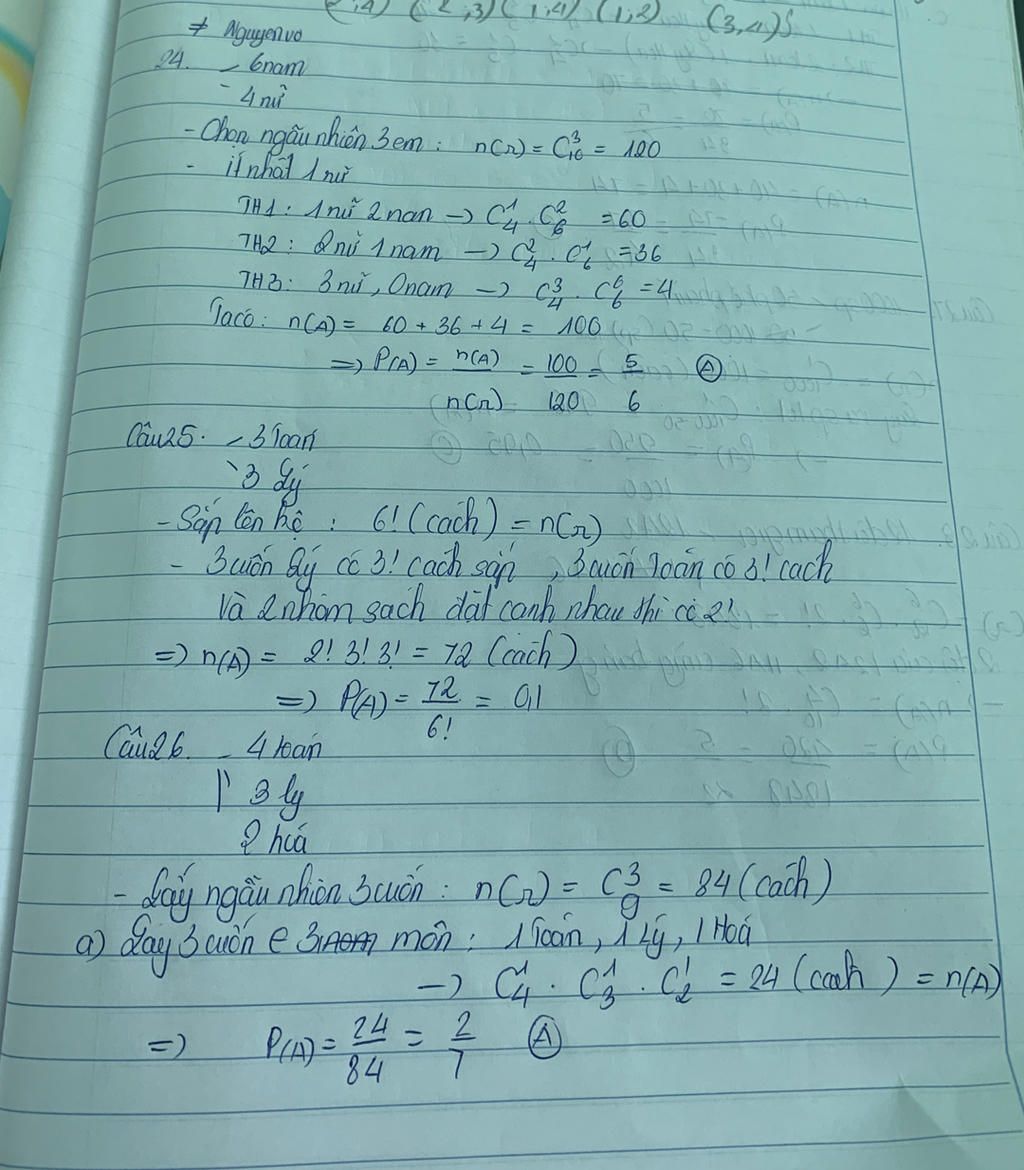 (2,3) (1,4) (1,2) (3,4)}
≠ Nguyenvo
24. - 6nam
- 4nữ
- Chọn ngẫu nhiên 3 em : n(Ω) = C³₁₀ = 120
- ít nhất 1 nữ
TH1 : 1 nữ 2 nan → C¹₄ . C²₆ = 60
TH2 : 2 nữ 1 nam → C²₄ . C¹₆ = 36
TH3 : 3 nữ, 0 nam → C³₄ . C⁶₆ = 4
Ta có : n(A) = 60 + 36 + 4 = 100
=> P(A) = n(A)/n(Ω) = 100/120 = 5/6 Ⓐ
Câu 25. - 3 Toán
3 Lý
- Sắp lên kệ : 6! (cách) = n(Ω)
- 3 cuốn Lý có 3! cách sắp , 3 cuốn Toán có 3! cach
Và 2 nhóm sách đặt cạnh nhau thì có 2!
=> n(A) = 2! 3! 3! = 72 (cách)
=> P(A) = 72/6! = 0,1
Câu 26. - 4 toán
3 lý
2 hoá
- Lấy ngẫu nhiên 3 cuốn : n(Ω) = C³₉ = 84 (cách)
a) Lấy 3 cuốn e 3 môn : 1 Toán, 1 Lý, 1 Hoá
→ C¹₄ . C¹₃ . C¹₂ = 24 (cách) = n(A)
=> P(A) = 24/84 = 2/7 Ⓐ